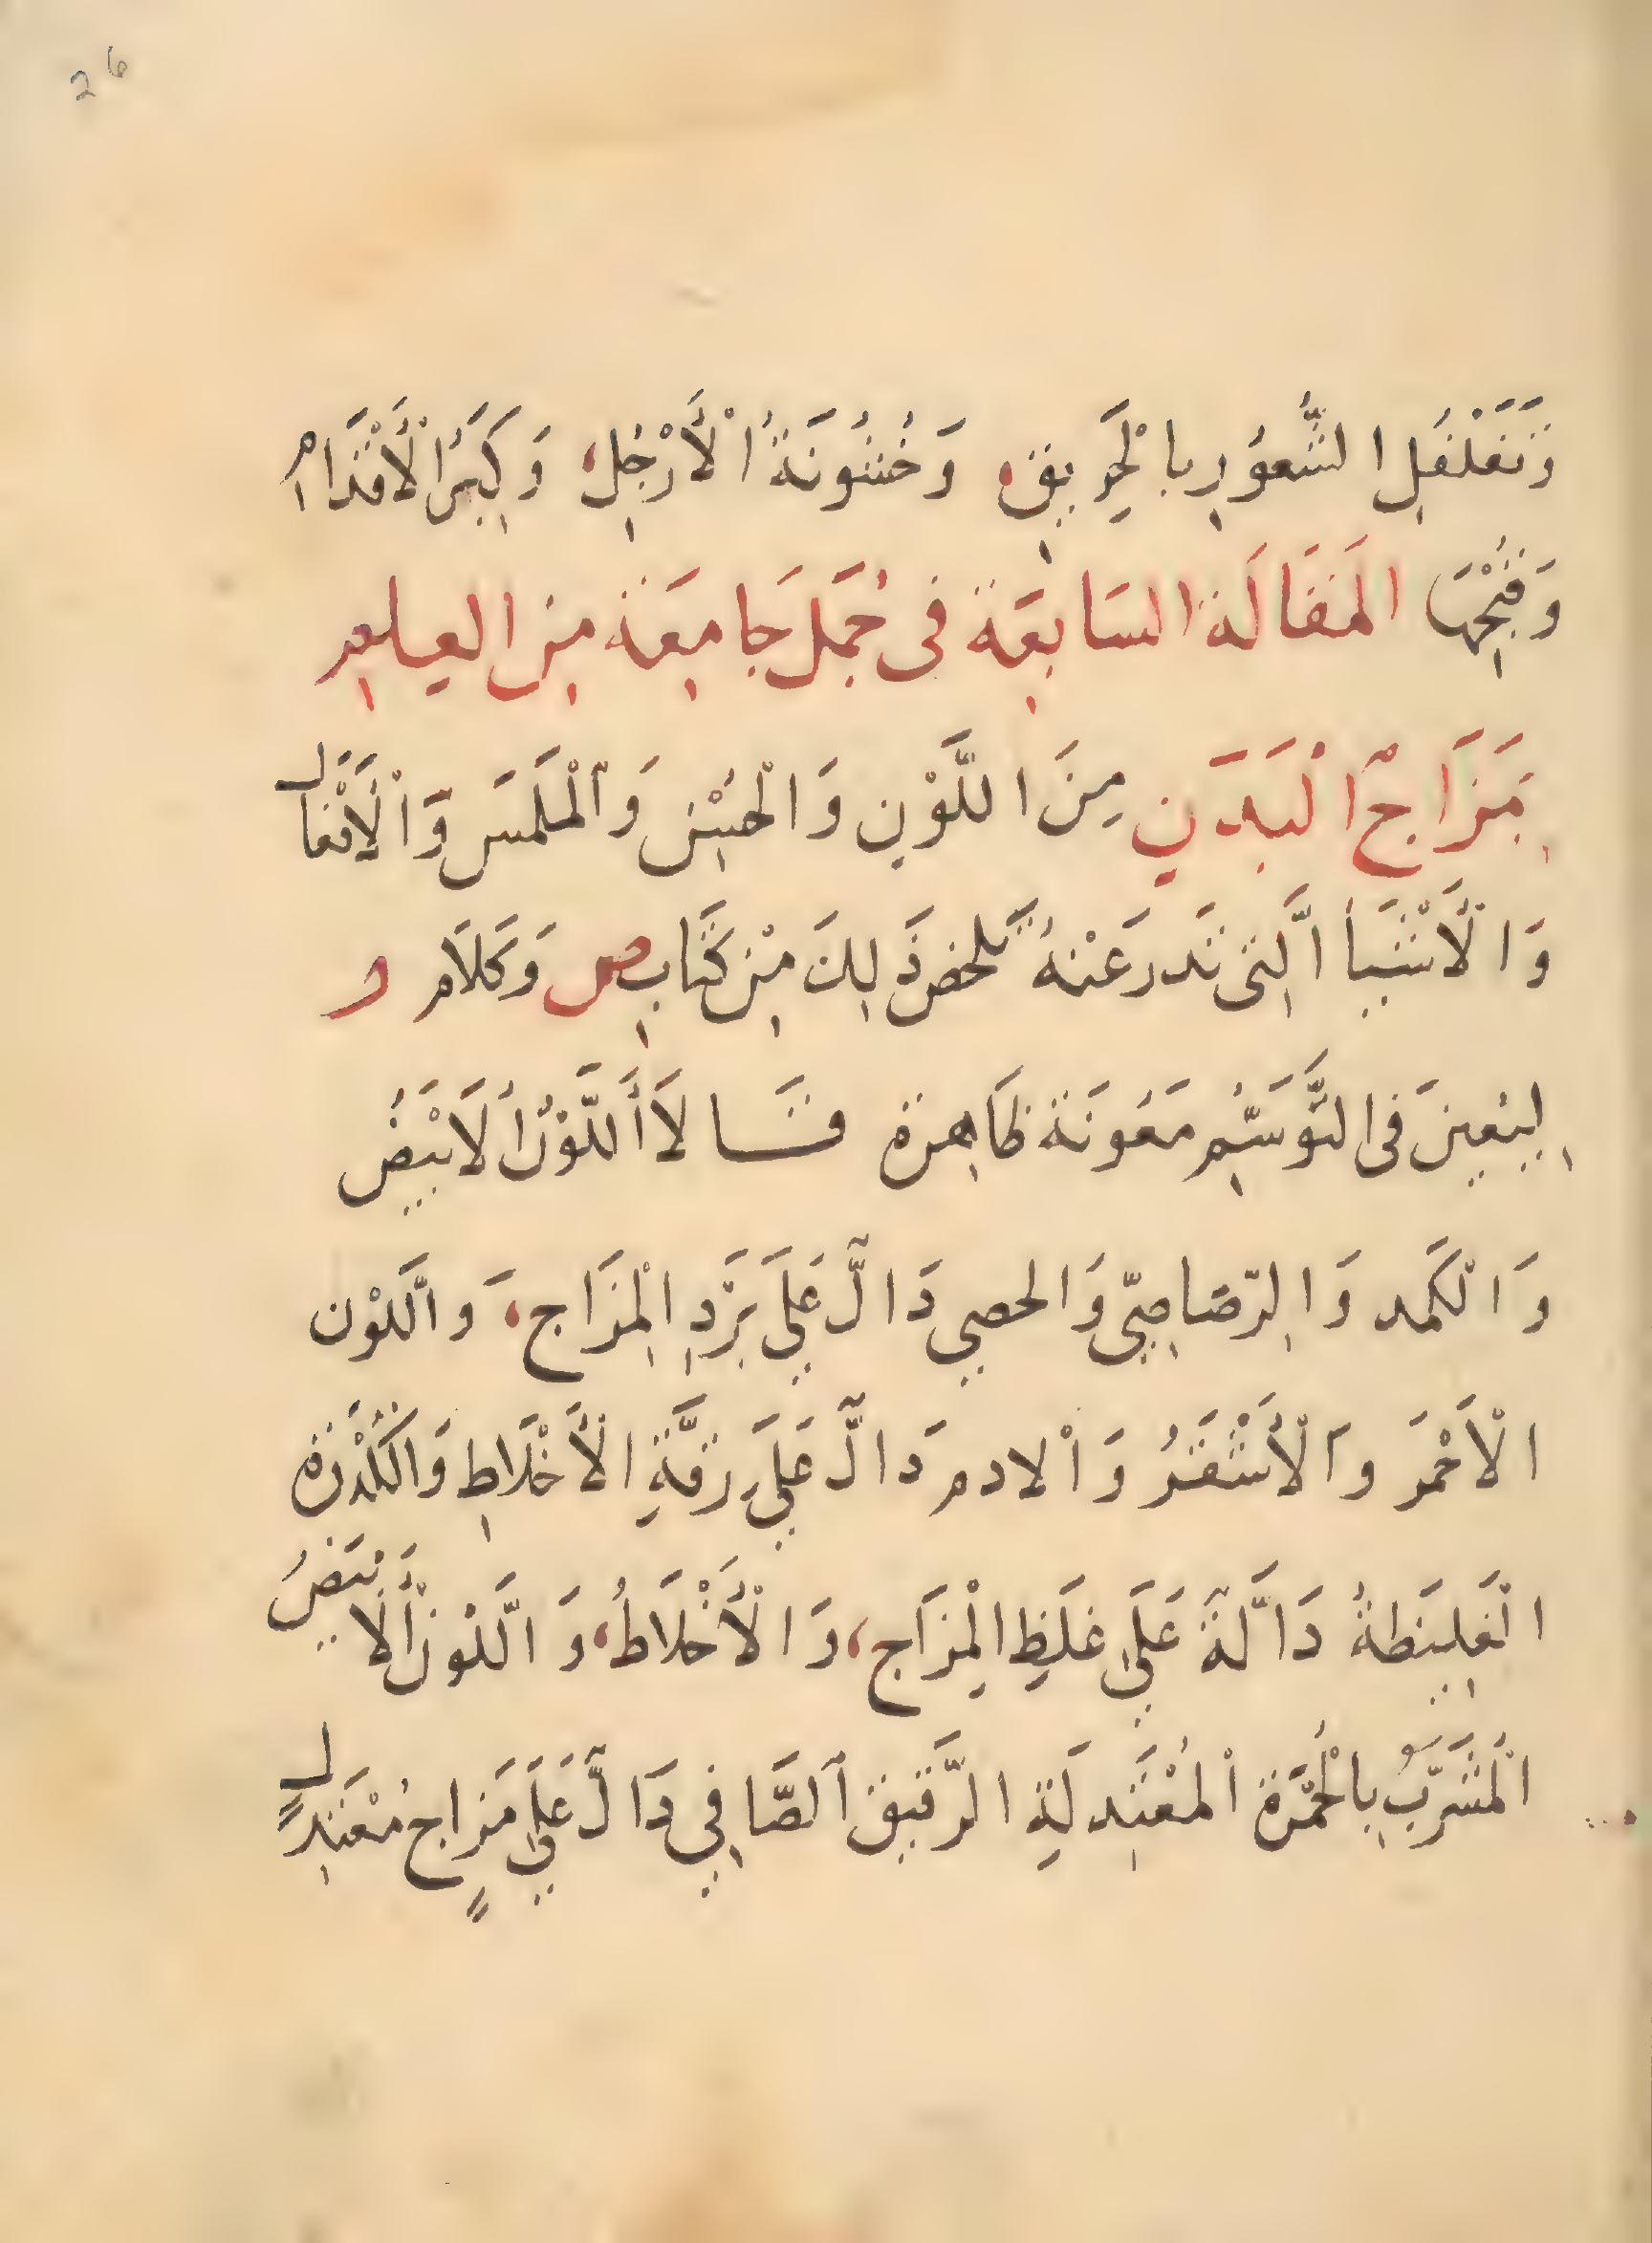 26
وَتَفَلْفُلِ الشُّعُورِ بِالْحَرِيقِ، وَخُشُونَةُ الْأَرْجُلِ، وَكِبَرُ الْأَقْدَامِ
وَقُبْحِهَا الْمَقَالَة السَابِعَة فى جُمَل جَامِعَة مِن العلم
بِمَزَاجِ الْبَدَنِ مِنَ اللَّوْنِ وَالْهَيْئَ وَالْمَلْمَسَ وَالْأَفْعَال
وَالْأَشْيَا الَّتِى تَدر عَنْهُ تلخص ذَلِكَ مِنْ كِتَابِ ص وَكَلَام ر
لِيُعِينَ فى التَّوَسُّمِ مَعُونَة ظَاهِرة قَـــالَا اللَّوْنُ الَابْيَضُ
وَالْكَمد وَالرّصَاصِيّ وَالحصي دَالٌّ عَلَي بَرْدِ الْمِزَاجِ، وَاللَّوْن
الْأَحْمَر وَالْأَشْقَرُ وَالادم دَالٌّ عَلَي رِقَّةِ الْأَخْلَاطِ وَالْكُدْرَة
الْغَلِيظَةُ دَالَّة عَلَي غِلَظِ الْمِزَاجِ، وَالْأَخْلَاطُ، وَاللَّوْنُ الْأَبْيَضُ
الْمُشَرَّبُ بِالْحُمْرَة الْمُعْتَدِلَةِ الرَّقِيق الصَّافِي دَالٌّ عَلَي مَزَاجٍ مُعْتَدِلٍ